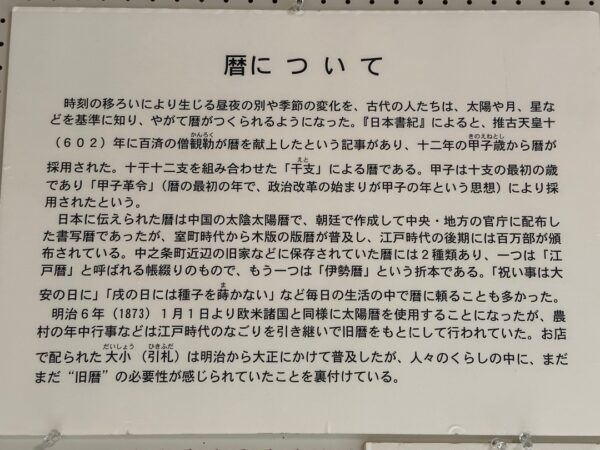 暦について
時刻の移ろいにより生じる昼夜の別や季節の変化を、古代の人たちは、太陽や月、星な
どを基準に知り、やがて暦がつくられるようになった。『日本書紀』によると、推古天皇十
(602)年に百済の僧観勒が暦を献上したという記事があり、十二年の甲子歳から暦が
採用された。十干十二支を組み合わせた「干支」による暦である。甲子は十支の最初の歳
であり「甲子革令」(暦の最初の年で、政治改革の始まりが甲子の年という思想)により採
用されたという。
日本に伝えられた暦は中国の太陰太陽暦で、朝廷で作成して中央・地方の官庁に配布し
た書写暦であったが、室町時代から木版の版暦が普及し、江戸時代の後期には百万部が頒
布されている。中之条町近辺の旧家などに保存されていた暦には2種類あり、一つは「江
戸暦」と呼ばれる帳綴りのもので、もう一つは「伊勢暦」という折本である。「祝い事は大
安の日に」「戌の日には種子を蒔かない」など毎日の生活の中で暦に頼ることも多かった。
明治6年(1873)1月1日より欧米諸国と同様に太陽暦を使用することになったが、農
村の年中行事などは江戸時代のなごりを引き継いで旧暦をもとにして行われていた。お店
で配られた大小(引札)は明治から大正にかけて普及したが、人々のくらしの中に、まだ
まだ“旧暦”の必要性が感じられていたことを裏付けている。